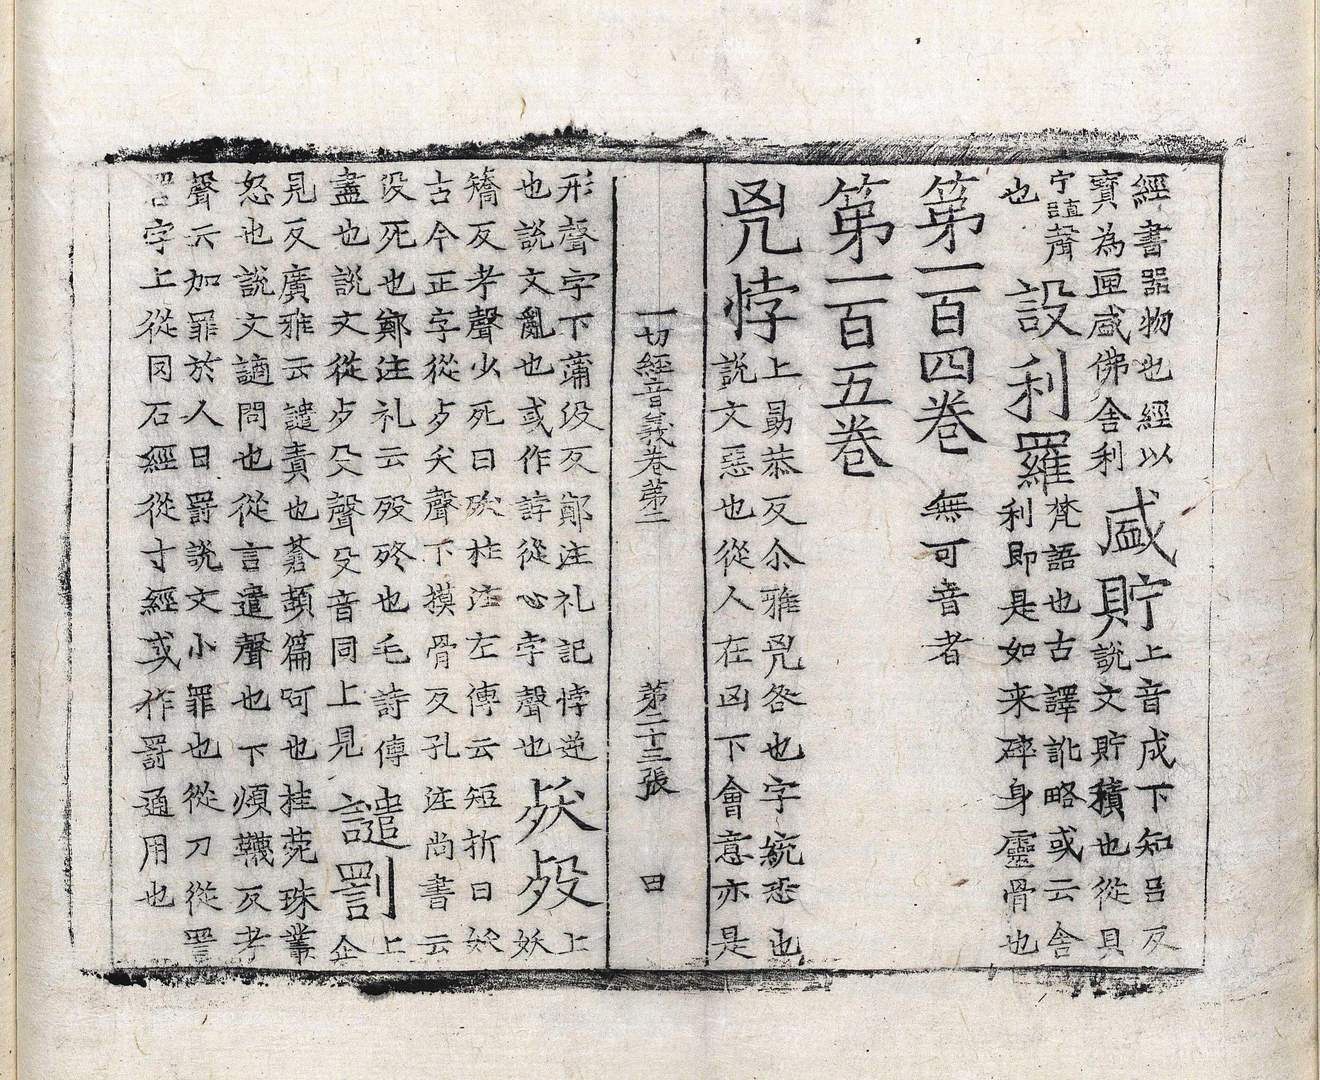 經書器物也經以
寶為匣盛佛舍利
盛貯
上音成下知呂反
說文貯積也從貝
宁誼聲
也
設利羅
梵語也古譯訛略或云舍
利即是如来碎身靈骨也
第一百四卷
無可音者
第一百五卷
兕悖
上勗恭反尒雅兕咎也字統恐也
說文惡也從人在凶下會意亦是
一切經音義卷苐二 苐二十三張 日
形聲字下蒲沒反鄭注礼記悖逆
也說文亂也或作誖從心孛聲也
殀歿
上
妖
矯反考聲少死曰殀杜注左傳云短折曰妖
古今正字從歹夭聲下摸骨反孔注尚書云
没死也鄭注礼云歿終也毛詩傳
盡也說文從歹殳聲殳音同上見
譴罰
上
企
見反廣雅云譴責也蒼頡篇呵也桂菀珠叢
怒也說文讁問也從言遣聲也下煩韈反考
聲云加罪於人曰罰說文小罪也從刀從詈
字上從同石經從寸經或作罰通用也